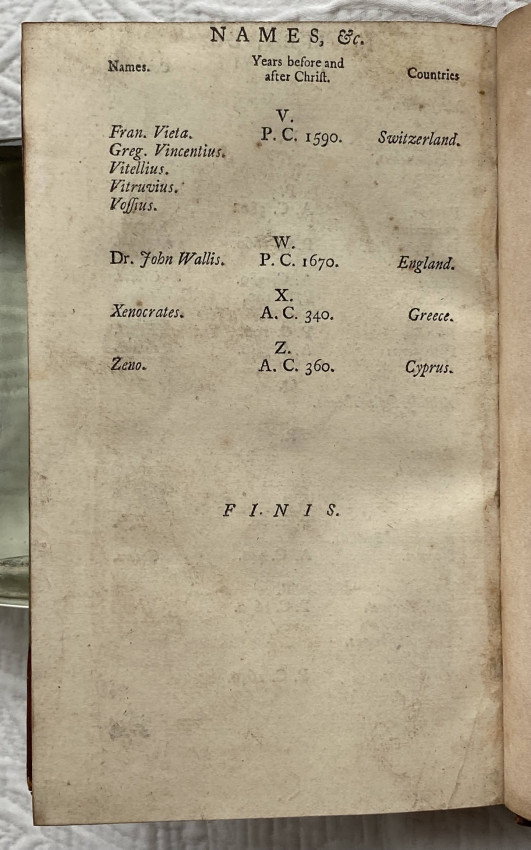 NAMES, &c.
Names. Years before and after Chriſt. Countries
V.
Fran. Vieta. P. C. 1590. Switzerland.
Greg. Vincentius.
Vitellius.
Vitruvius.
Voſſius.
W.
Dr. John Wallis. P. C. 1670. England.
X.
Xenocrates. A. C. 340. Greece.
Z.
Zeno. A. C. 360. Cyprus.
FINIS.